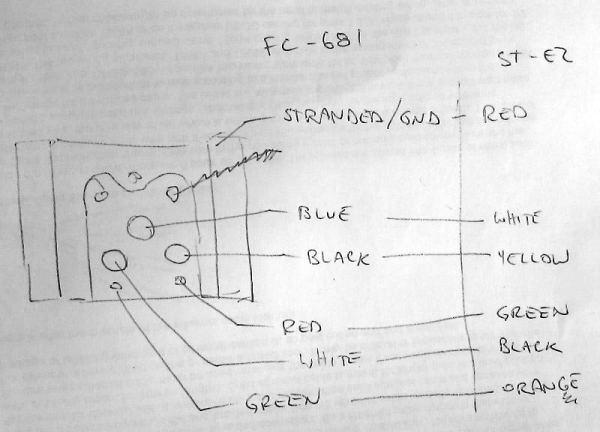 FC-681
ST-EZ
STRANDED/GND - RED
BLUE WHITE
BLACK YELLOW
RED GREEN
WHITE BLACK
GREEN ORANGE